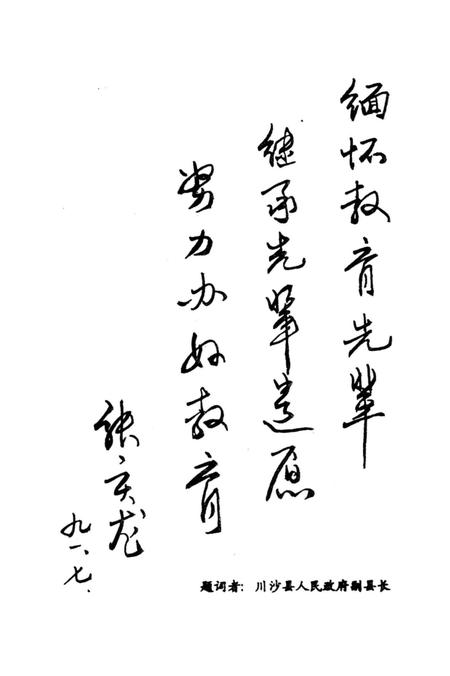 缅怀教育先辈
继承先辈遗愿
努力办好教育
张文龙
九一.七.
题词者：川沙县人民政府副县长